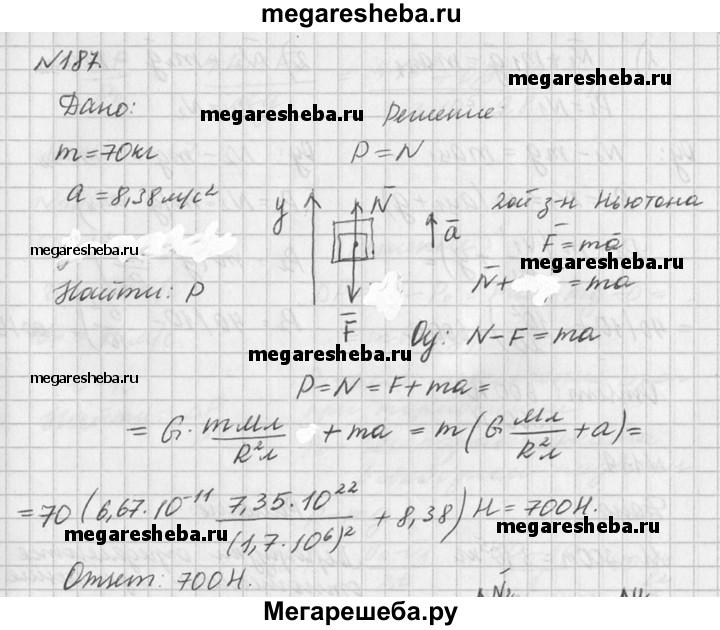 megaresheba.ru
№187.
megaresheba.ru
Дано:
megaresheba.ru
Решение:
m=70кг
P=N
a=8,38м/с²
y
N̄
ā
2ой з-н Ньютона
F̄=mā
megaresheba.ru
megaresheba.ru
Найти: P
N̄+ =mā
F̄
Oy: N-F=ma
megaresheba.ru
megaresheba.ru
P=N=F+ma=
=G·mMл/R²л +ma = m(G Mл/R²л +a)=
=70(6,67·10⁻¹¹ 7,35·10²²/(1,7·10⁶)² +8,38)Н=700Н.
megaresheba.ru
megaresheba.ru
Ответ: 700Н.
Мегарешеба.ру